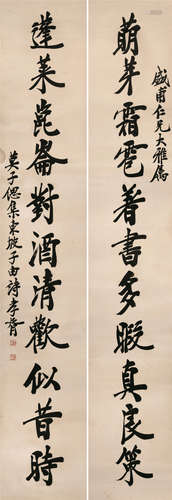 盛甫仁兄大雅属
萌芽霜雹著書多暇真良策
蓬莱崑崙對酒清歡似昔時
莫子偲集東坡子由詩孝胥